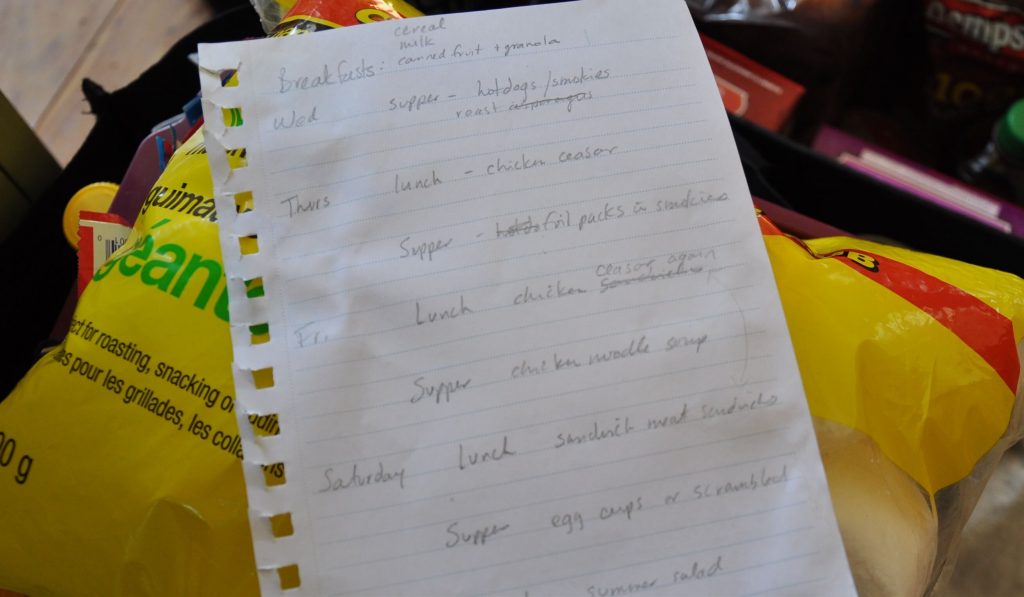 cereal
milk
Breakfests: canned fruit + granola
Wed supper - hotdogs/smokies
roast asparagus
Thurs lunch - chicken ceasar
Supper - foil packs
ceasar again
Fr. Lunch chicken
Supper chicken noodle soup
Saturday lunch sandwich meat sandwichs
Supper egg cups or scrambled
summer salad
guimau
géant
ct for roasting, snacking or
es pour les grillades, les colla
00 g
B
emps